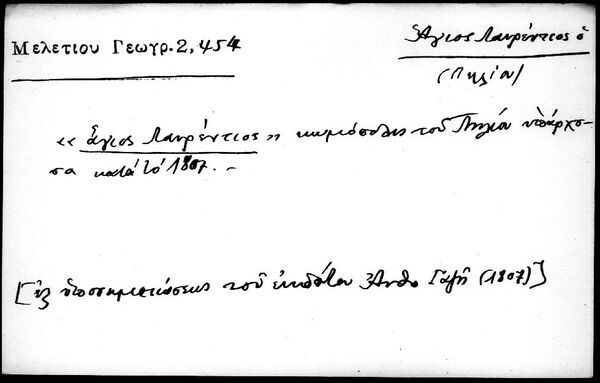 Μελετίου Γεωγρ. 2, 454
Ἅγιος Λαυρέντιος ὁ
(Πηλίου)
«ἅγιος Λαυρέντιος» κωμόπολις τοῦ Πηλίου ὑπάρχου-
σα κατὰ τὸ 1807. –
[ἐξ ὑποσημειώσεως τοῦ ἐκδότου Ἀνθ. Γαζῆ (1807)]